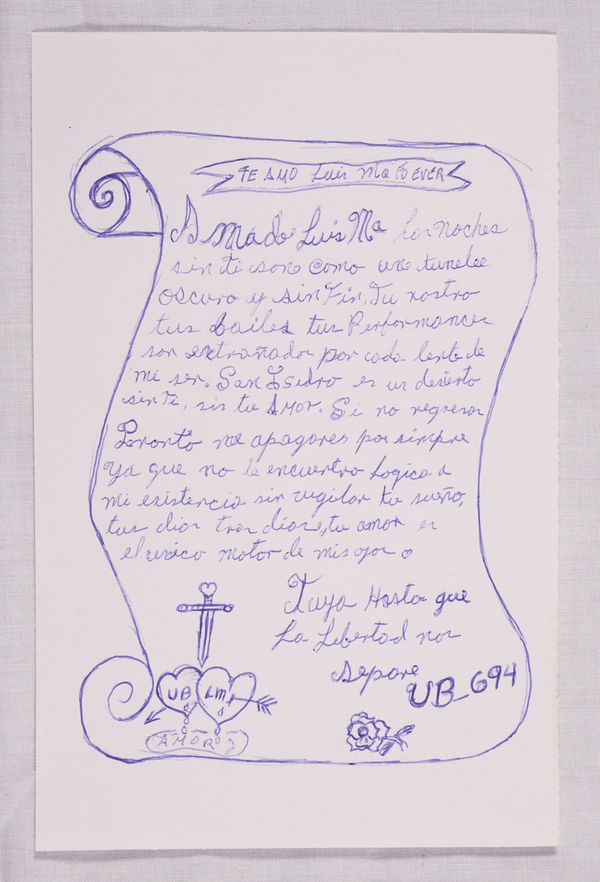 TE AMO Luis Ma fo EVER
Amado Luis Ma las noches
sin ti son como un tunel
oscuro y sin Fin, Tu rostro
tus bailes tus Performances
son extrañados por cada lente de
mi ser. San Isidro es un desierto
sin ti, sin tu AMOR. Si no regresas
Pronto me apagares por simpre
ya que no le encuentro Logica a
mi existencia sin vigilar tu sueño,
tus dias tras dias, tu amor es
el unico motor de mis ojos
Tuya Hasta que
La Libertad nos
separe
UB_694
UB LM
AMOR